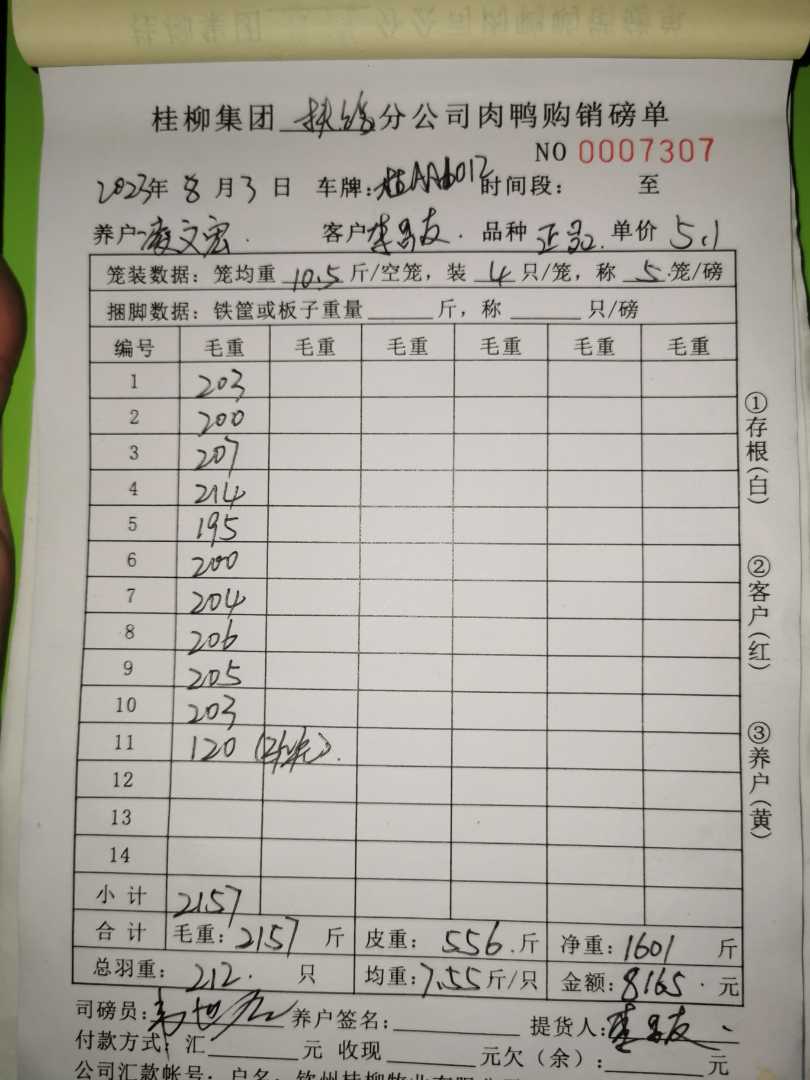 桂柳集团 扶绥 分公司肉鸭购销磅单
NO 0007307
2023年 8 月 3 日 车牌:桂AA6012 时间段: 至
养户 凌文宏. 客户 李昌友. 品种 正品 单价 5.1
笼装数据:笼均重 10.5 斤/空笼,装 4 只/笼,称 5 笼/磅
捆脚数据:铁筐或板子重量 斤,称 只/磅
编号 毛重 毛重 毛重 毛重 毛重 毛重
1 203
2 200
3 207
4 214
5 195
6 200
7 204
8 206
9 205
10 203
11 120
12
13
14
小 计 2157
合 计 毛重:2157 斤 皮重:556.斤 净重:1601 斤
总羽重:212. 只 均重:7.55斤/只 金额:8165.元
司磅员: 养户签名: 提货人:李昌友
付款方式:汇 元 收现 元欠(余): 元
公司汇款帐号:户名:钦州桂柳牧业有限公司
①存根(白)
②客户(红)
③养户(黄)